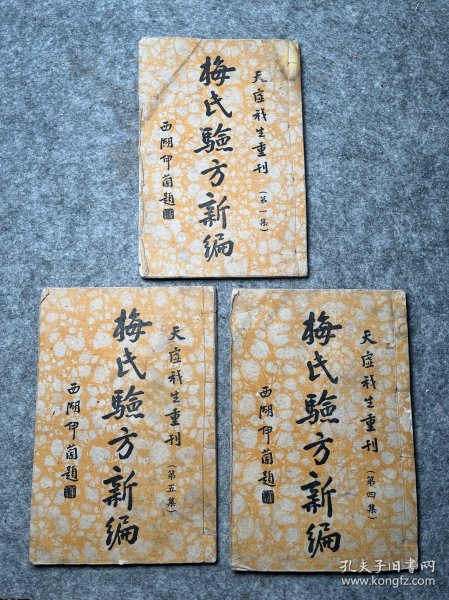 天虛我生重刊
(第一集)
梅氏驗方新編
西湖伊蘭題
天虛我生重刊
(第五集)
梅氏驗方新編
西湖伊蘭題
天虛我生重刊
(第四集)
梅氏驗方新編
西湖伊蘭題
孔夫子旧书网
www.kongfz.com